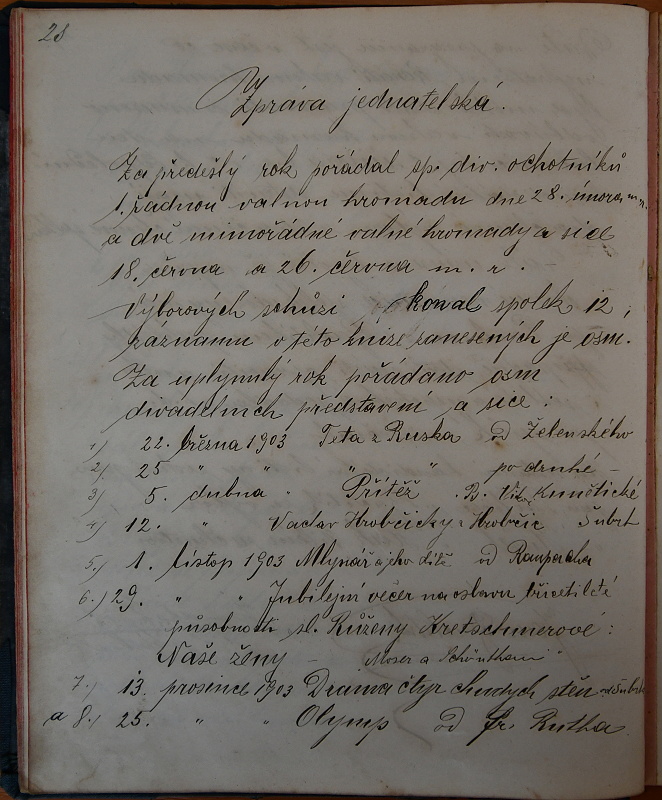 28
Zpráva jednatelská.
Za předešlý rok pořádal sp. div. ochotníků
1. řádnou valnou hromadu dne 28. února m. r.
a dvě mimořádné valné hromady a sice
18. června a 26. června m. r. –
Výborových schůzí konal spolek 12,
záznamů v této knize zanesených je osm.
Za uplynulý rok pořádano osm
divadelních představení a sice:
1) 22. března 1903 Teta z Ruska od Želenského
2) 25 " " " " po druhé –
3) 5. dubna " Přítěž B. Vik. Kunětické
4) 12. " Vaclav Hrobčický z Hrobčic Šubrt
5.) 1. listop 1903 Mlynář a jeho dítě od Raupacha
6.) 29. " " Jubilejní večer na oslavu třicetileté
působnosti sl. Růženy Kretschmerové:
Naše ženy – "Moser a Schönthan"
7.) 13. prosince 1903 Drama čtyř chudých stěn od Šubrt
a 8.) 25. " " Olymp od Fr. Rutha